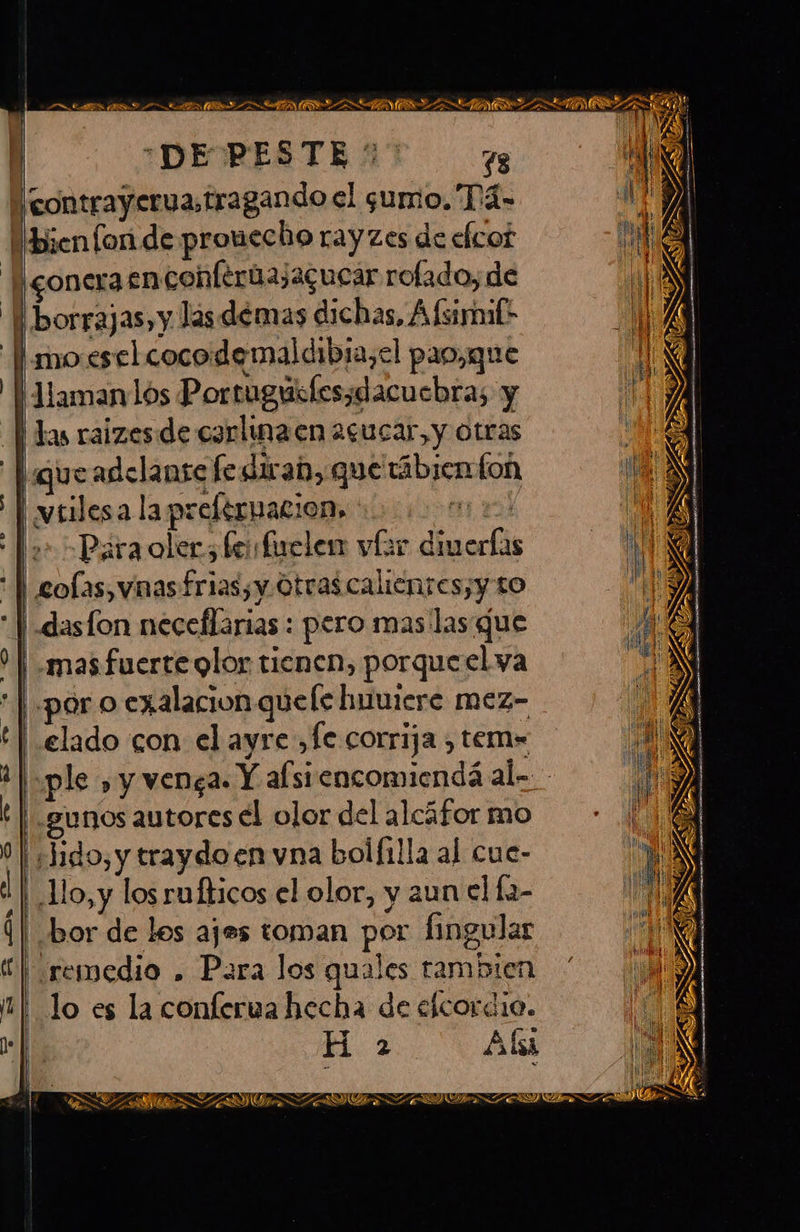 DE PESTE 78
contrayerua,tragando el çumo. Tã-
bien ſon de prouecho rayzes de eſcor
çonera en conſerua,açucar roſado, de
borrajas, y las demas dichas. Aſsimiſ-
mo es el coco de maldibia, el pao, que
llaman los Portugueſes, dacuebra, y
las raizes de carlina en açucar, y otras
que adelante ſe diran, que tãbien ſon
vtiles a la preſeruacion.
Para oler, ſe ſuelen vſar diuerſas
coſas, vnas frias, y otras calientes, y to
das ſon neceſſarias : pero mas las que
mas fuerte olor tienen, porque el va
por o exalacion que ſe huuiere mez-
clado con el ayre , ſe corrija , tem-
ple , y vença. Y aſsi encomiendã al-
gunos autores el olor del alcãfor mo
lido, y traydo en vna bolſilla al cue-
llo, y los ruſticos el olor, y aun el ſa-
bor de los ajos toman por ſingular
remedio . Para los quales tambien
lo es la conſerua hecha de eſcordio.
H 2 Aſsi